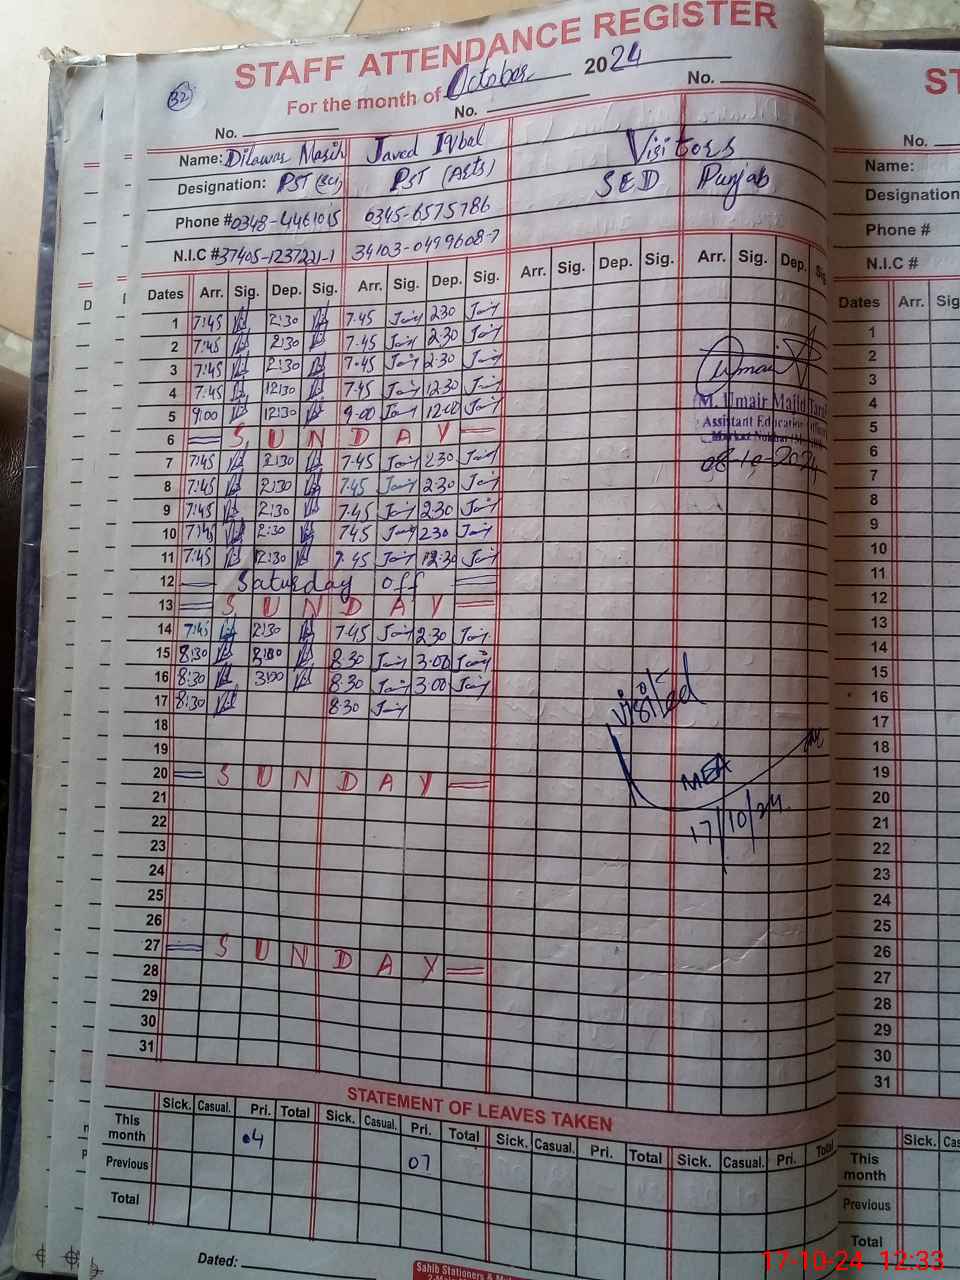 STAFF ATTENDANCE REGISTER
32
For the month of October 2024
No. No. No.
Name: Dilawar Masih Javed Iqbal Visitors
Designation: PST (Sc) PST (Arts) SED Punjab
Phone # 0348-4461015 0345-6575786
N.I.C # 37405-1237221-1 34103-0499608-7
Dates Arr. Sig. Dep. Sig. Arr. Sig. Dep. Sig. Arr. Sig. Dep. Sig. Arr. Sig. Dep. Sig
1 7:45 2:30 7.45 2.30
2 7:45 2:30 7.45 2.30
3 7:45 2:30 7.45 2.30
4 7:45 12:30 7.45 12.30
5 9:00 12:30 9.00 12.00
6 = S U N D A Y =
7 7:45 2:30 7.45 2.30
8 7:45 2:30 7.45 2.30
9 7:45 2:30 7.45 2.30
10 7:45 2:30 7.45 2.30
11 7:45 12:30 7.45 12.30
12 = Saturday off =
13 = S U N D A Y =
14 7:45 2:30 7.45 2.30
15 8:30 3:00 8.30 3.00
16 8:30 3:00 8.30 3.00
17 8:30 8.30
18
19
20 = S U N D A Y =
21
22
23
24
25
26
27 = S U N D A Y =
28
29
30
31
M. Umair Majid
Assistant Education Officer
08-10-2024
visited
MEA
17/10/24
STATEMENT OF LEAVES TAKEN
Sick. Casual. Pri. Total Sick. Casual. Pri. Total Sick. Casual. Pri. Total Sick. Casual. Pri. Total
This month 04
Previous 07
Total
Dated:
Sahib Stationers &
ST
No.
Name:
Designation
Phone #
N.I.C #
Dates Arr. Sig
1
2
3
4
5
6
7
8
9
10
11
12
13
14
15
16
17
18
19
20
21
22
23
24
25
26
27
28
29
30
31
Sick. Cas
This month
Previous
Total
17-10-24 12:33